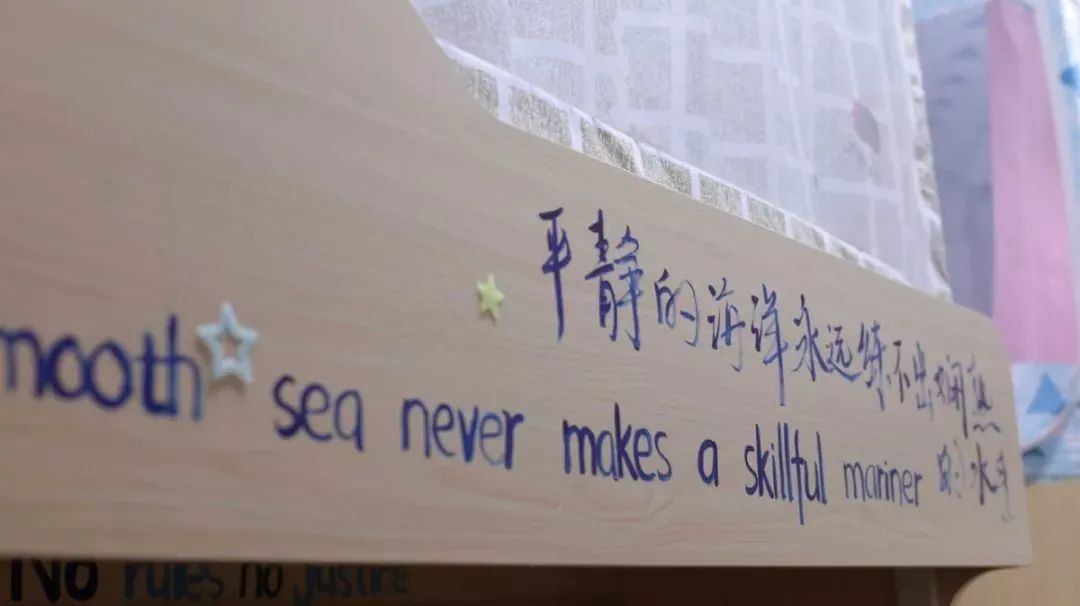 平静的海洋永远练不出娴熟
的水手
mooth sea never makes a skillful mariner
No rules, no justice